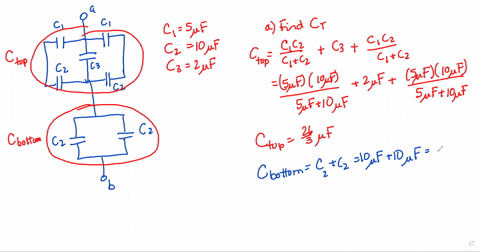 a
C₁ C₁
C_top
C₃
C₂ C₂
C_bottom
C₂ C₂
b
C₁ = 5μF
C₂ = 10μF
C₃ = 2μF
a) Find C_T
C_top = C₁C₂/C₁+C₂ + C₃ + C₁C₂/C₁+C₂
= (5μF)(10μF)/5μF+10μF + 2μF + (5μF)(10μF)/5μF+10μF
C_top = 26/3 μF
C_bottom = C₂ + C₂ = 10μF + 10μF =